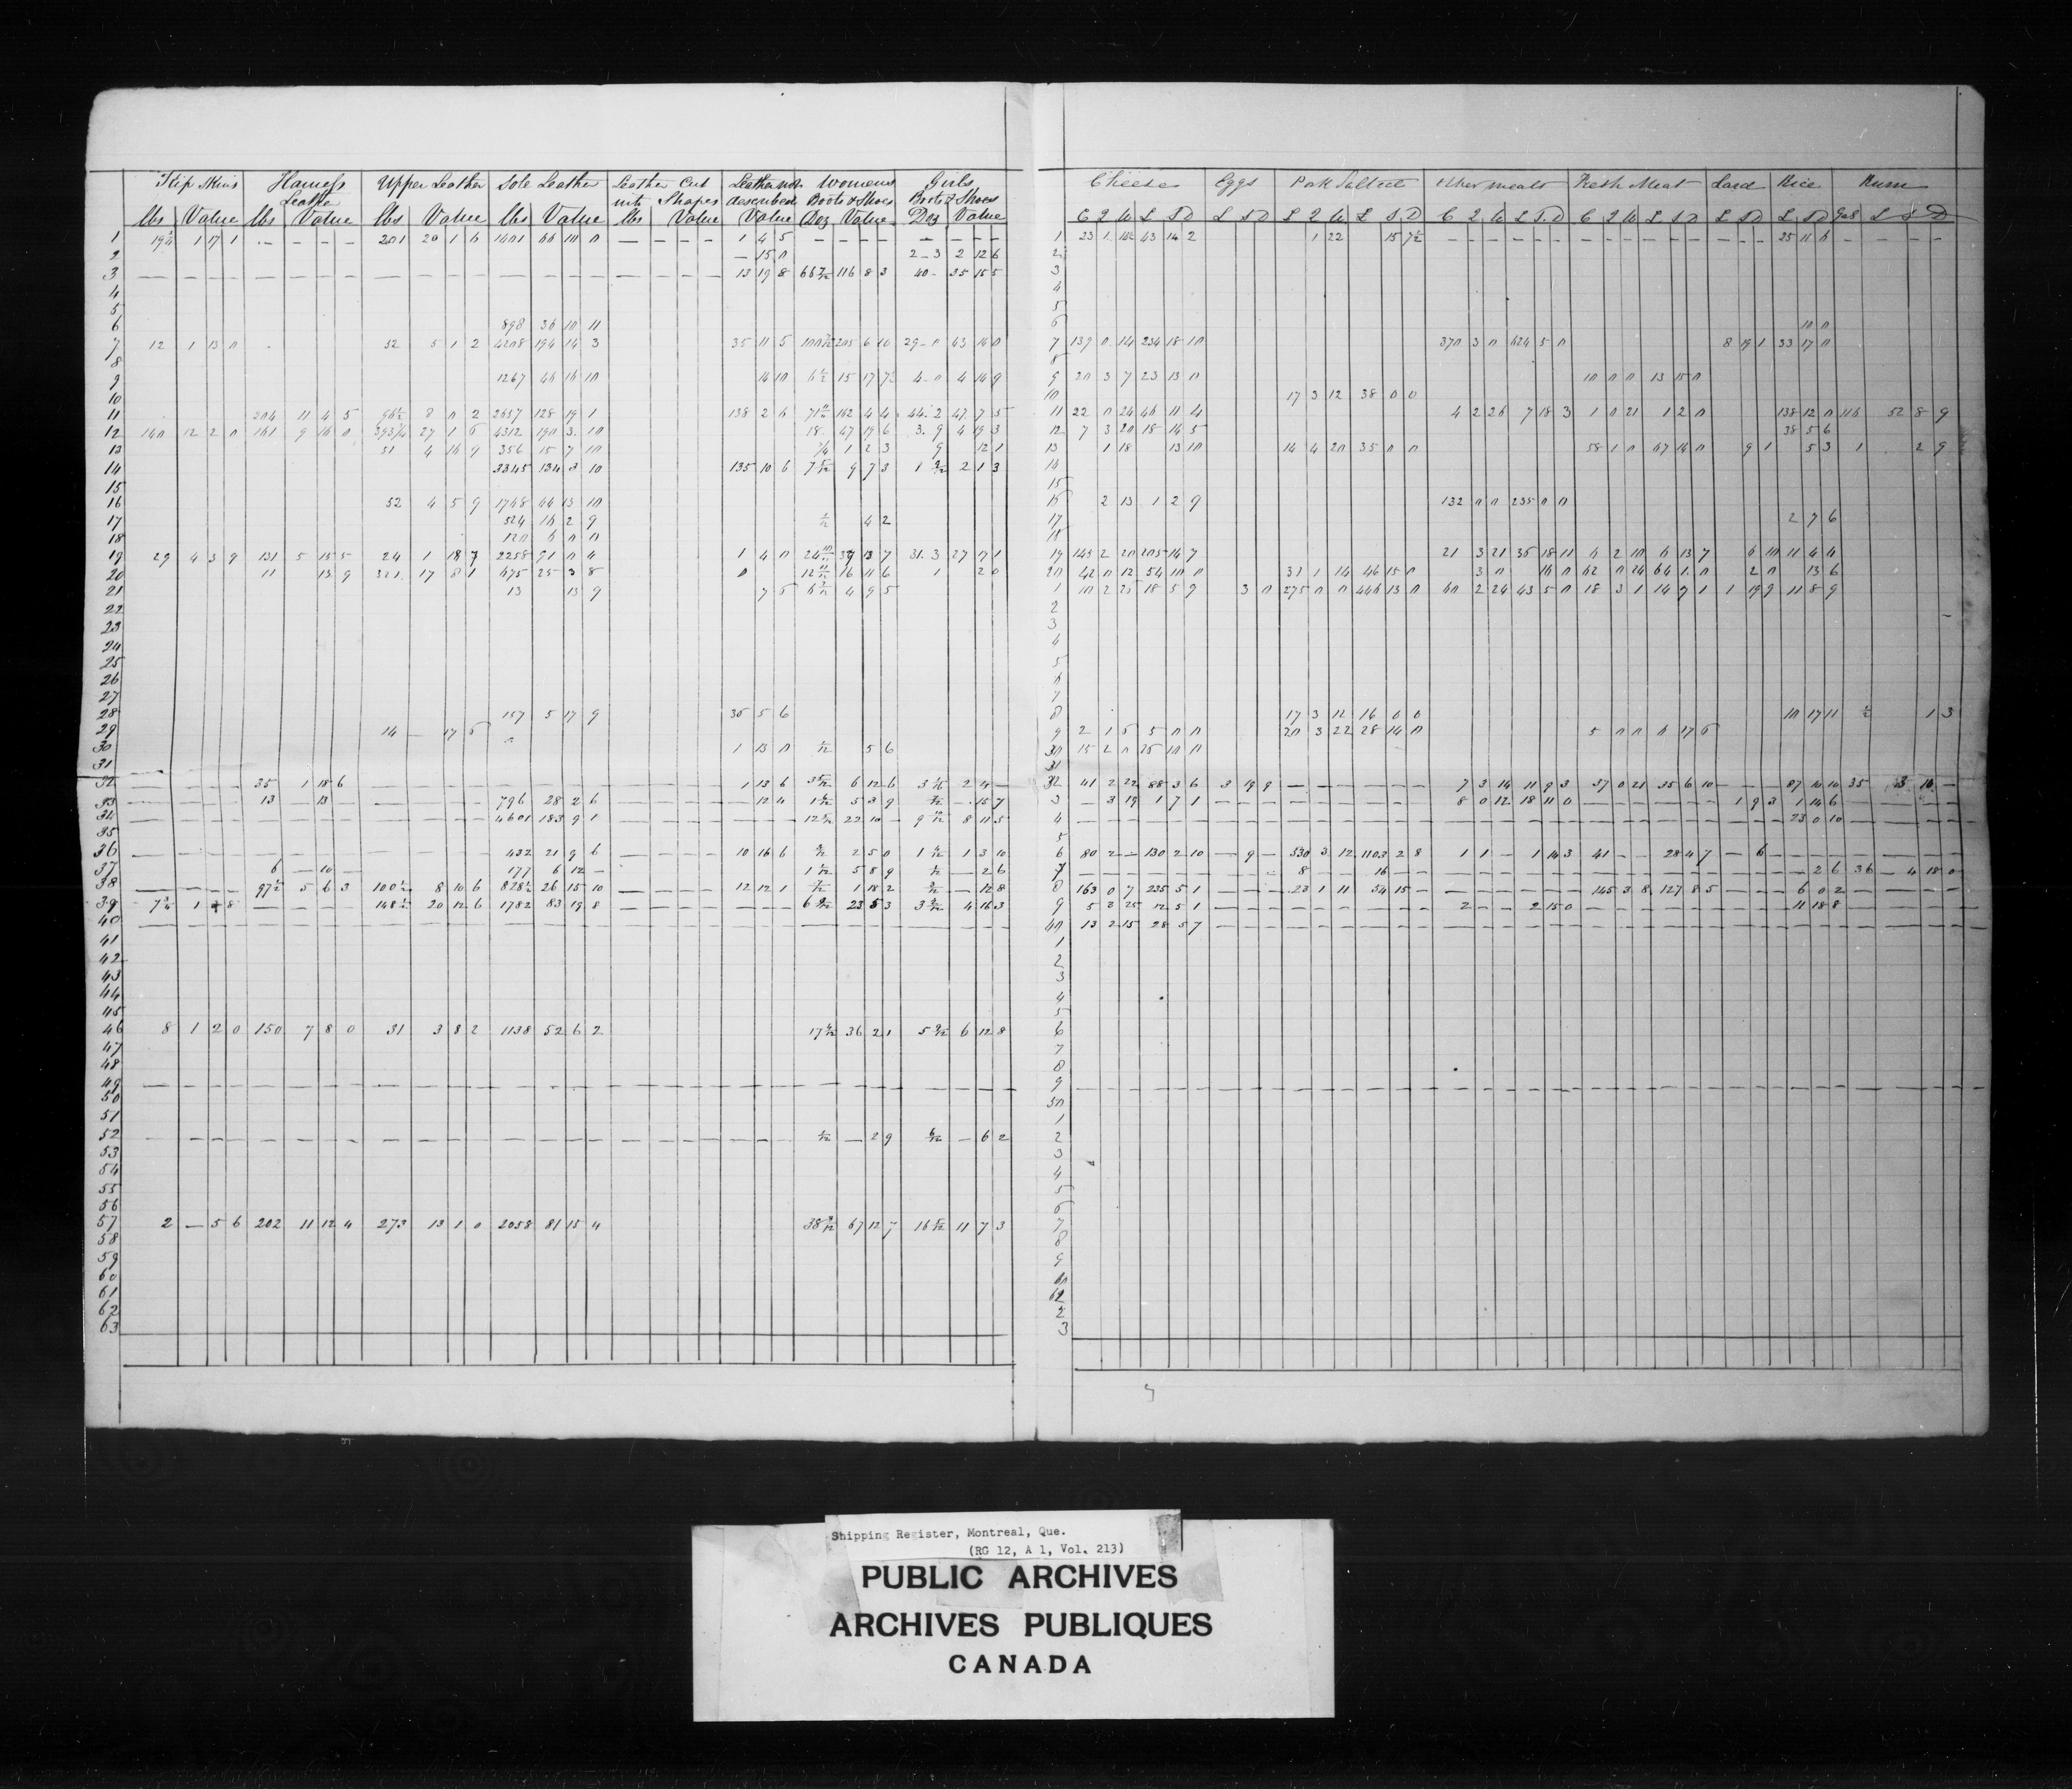 Skip Skins Harness Leather Upper Leather Sole Leather Leather Cut into Shapes Leather not described Womens Boots & Shoes Girls Boots & Shoes
lbs Value lbs Value lbs Value lbs Value lbs Value Value Doz Value Doz Value
1 1 17 1 — — — — 201 20 1 6 1401 66 10 0 — — — — 1 4 5 — — — — — — — —
2 — 15 0 2-3 2 12 6
3 — — — — — — — — — — — — — — — — — — — — 13 19 8 66 7/12 116 8 3 40 - 35 15 5
4
5
6 898 36 10 11
7 12 1 13 0 52 5 1 2 4208 194 14 3 35 11 5 205 6 10 29-0 43 14 0
8
9 1267 46 16 10 14 10 6 1/2 15 17 7 4-0 4 14 9
10
11 204 11 4 5 96 1/2 8 0 2 2657 128 19 1 138 2 6 162 4 4 44.2 47 7 5
12 140 12 2 0 161 9 16 0 393 3/4 27 1 6 4312 190 3 10 18 47 19 6 3.9 4 19 3
13 51 4 16 9 356 15 7 10 1 2 3 9 12 1
14 3345 134 3 10 135 10 6 7 5/12 9 7 3 2 1 3
15
16 52 4 5 9 1748 64 13 10
17 524 16 2 9 4 2
18 120 6 0 0
19 29 4 3 9 131 5 15 5 24 1 18 7 2258 91 0 4 1 4 0 24 10/12 39 13 7 31.3 27 7 1
20 11 13 9 321 17 8 1 675 25 3 8 12 11/12 16 11 6 1 2 0
21 13 13 9 7 5 4 9 5
22
23
24
25
26
27
28 157 5 17 9 35 5 6
29 14 — 17 6
30 1 13 0 5 6
31
32 — — — — 35 1 18 6 — — — — — — — — — — — — 1 13 6 6 12 6 2 4 —
33 — — — — 13 — 13 — — — — — 796 28 2 6 — — — — — 12 4 5 3 9 — 15 7
34 — — — — — — — — — — — — 4601 183 9 1 — — — — — — — 22 10 — 8 11 5
35
36 — — — — — — — — — — — — 432 21 9 6 — — — — 10 16 6 2 5 0 1 3 10
37 6 — 10 — 177 6 12 — 5 8 9 — 2 6
38 — — — — 97 1/2 5 6 3 100 1/2 8 10 6 828 1/2 26 15 10 — — — — 12 12 1 1 18 2 — 12 8
39 — — — — 148 1/2 20 12 6 1782 83 19 8 — — — — — — — 23 5 3 4 16 3
40 — — — — — — — — — — — — — — — — — — — — — — — — — — — — — — —
41
42
43
44
45
46 8 1 2 0 150 7 8 0 31 3 8 2 1138 52 6 2 36 2 1 6 12 8
47
48
49 — — — — — — — — — — — — — — — — — — — — — — — — — — — — — — —
50
51
52 — — — — — — — — — — — — — — — — — — — — — — — — 2 9 6/12 — 6 2
53
54
55
56
57 2 — 5 6 202 11 12 4 273 13 1 0 2058 81 15 4 67 12 7 16 5/12 11 7 3
58
59
60
61
62
63
Cheese Eggs Pork Salted Other meats Fresh Meat Lard Rice Rum
C 2 lb £ S D £ S D C 2 lb £ S D C 2 lb £ S. D C 2 lb £ S D £ S D £ S D Gals £ S D
1 23 1 43 14 2 1 22 15 7 1/2 — — — — — — — — — — — — — — — 25 11 6 — — — —
2
3
4
5
6 10 0
7 139 0 14 234 18 10 370 3 0 624 5 0 8 19 1 33 17 0
8
9 20 3 7 23 13 0 10 0 0 13 15 0
10 17 3 12 38 0 0
11 22 0 24 46 11 4 4 2 26 7 18 3 1 0 21 1 2 0 138 12 0 116 52 8 9
12 7 3 20 18 14 5 38 5 6
13 1 18 13 10 14 4 20 35 0 0 58 1 0 67 14 0 9 1 5 3 1 2 9
14
15
16 2 13 1 2 9 132 0 0 235 0 0
17 2 7 6
18
19 145 2 20 205 14 7 21 3 21 35 18 11 4 2 10 6 13 7 6 10 11 4 4
20 42 0 12 54 10 0 31 1 14 46 15 0 3 0 16 0 62 0 24 64 1 0 2 0 13 6
1 10 2 25 18 5 9 3 0 275 0 0 446 13 0 60 2 24 43 5 0 18 3 1 14 9 1 1 19 9 11 8 9
2
3
4
5
6
7
8 17 3 12 16 0 0 10 17 11 1/2 1 3
9 2 1 6 5 0 0 20 3 22 28 14 0 5 0 0 6 17 6
30 15 2 0 25 10 0
31
32 41 2 22 88 3 6 3 19 9 — — — — — — 7 3 14 11 9 3 37 0 21 35 6 10 — — — 87 10 10 35 3 10 —
3 — 3 19 1 7 1 — — — — — — — — — 8 0 12 18 11 0 — — — — — — 1 9 3 1 14 6 — — — —
4 — — — — — — — — — — — — — — — — — — — — — — — — — — — — — — 23 0 10 — — — —
5
6 80 2 — 130 2 10 — 9 — 530 3 12 1103 2 8 1 1 — 1 14 3 41 — — 28 4 7 — 6 — — — — — — — —
7 8 — — 16 — — — 2 6 36 — 4 18 0
8 163 0 7 235 5 1 — — — 23 1 11 54 15 — — — — — — — 145 3 8 127 8 5 — — — 6 0 2 — — — —
9 5 2 25 12 5 1 — — — — — — — — — 2 — — 2 15 0 — — — — — — — — — 11 18 8 — — — —
40 13 2 15 28 5 7 — — — — — — — — — — — — — — — — — — — — — — — — — — — — — — —
1
2
3
4
5
6
7
8
9 — — — — — — — — — — — — — — — — — — — — — — — — — — — — — —
50
1
2
3
4
5
6
7
8
9
60
2
3
Shipping Register, Montreal, Que.
(RG 12, A 1, Vol. 213)
PUBLIC ARCHIVES
ARCHIVES PUBLIQUES
CANADA